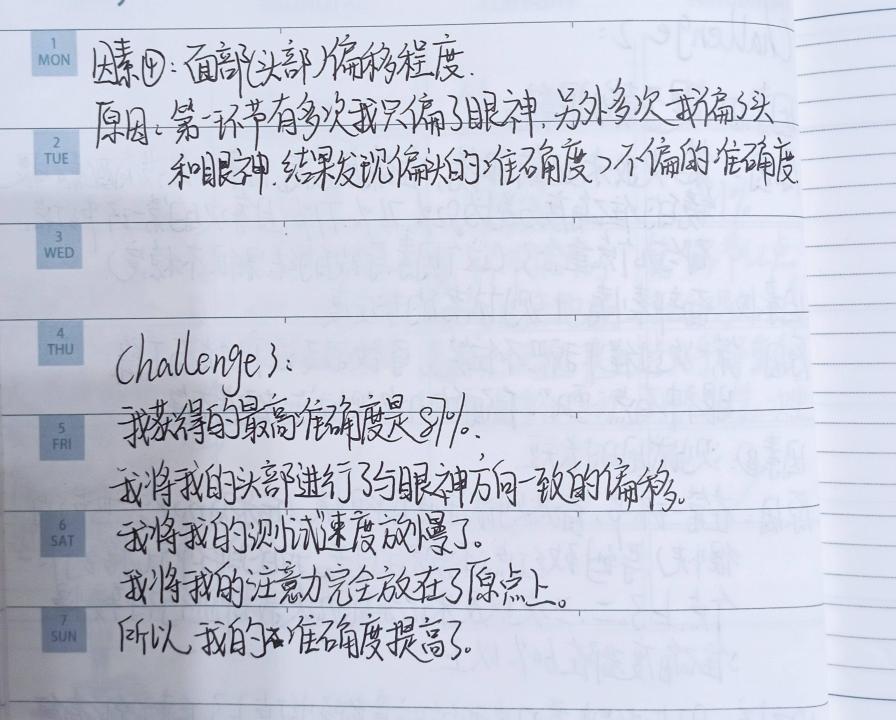 1
MON
因素④：面部（头部）偏移程度.
原因：第一环节有多次我只偏了眼神，另外多次我偏了头
2
TUE
和眼神，结果发现偏头的准确度>不偏的准确度
3
WED
4
THU
Challenge 3:
5
FRI
我获得的最高准确度是87%.
我将我的头部进行了与眼神方向一致的偏移。
6
SAT
我将我的测试速度放慢了。
我将我的注意力完全放在了原点上。
7
SUN
所以我的准确度提高了。